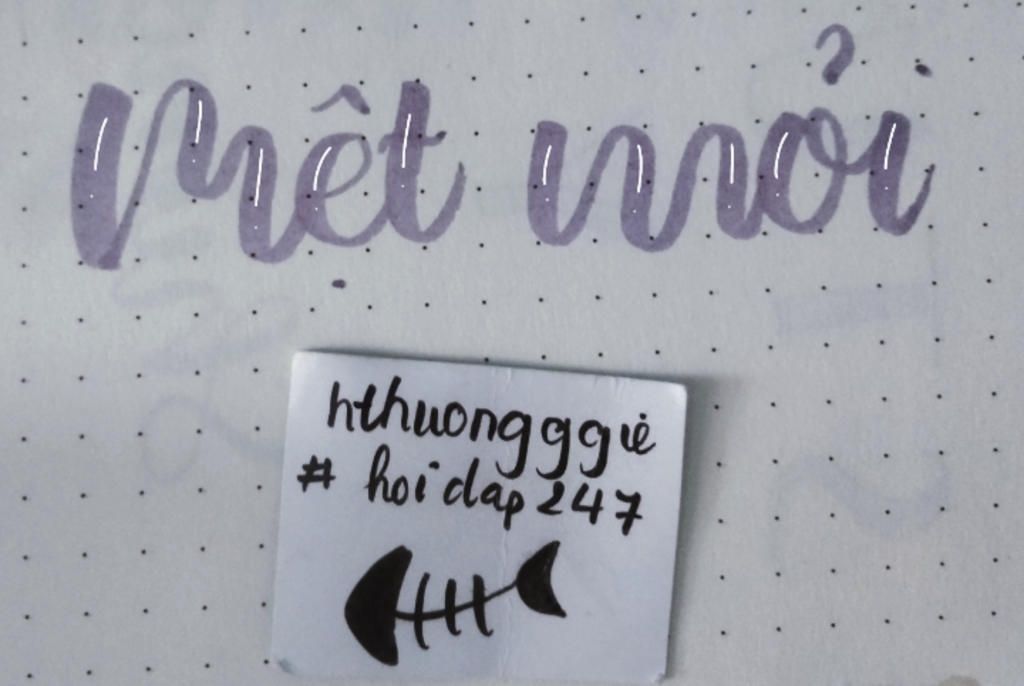 Mệt mỏi
hthuongggiè
# hoidap247